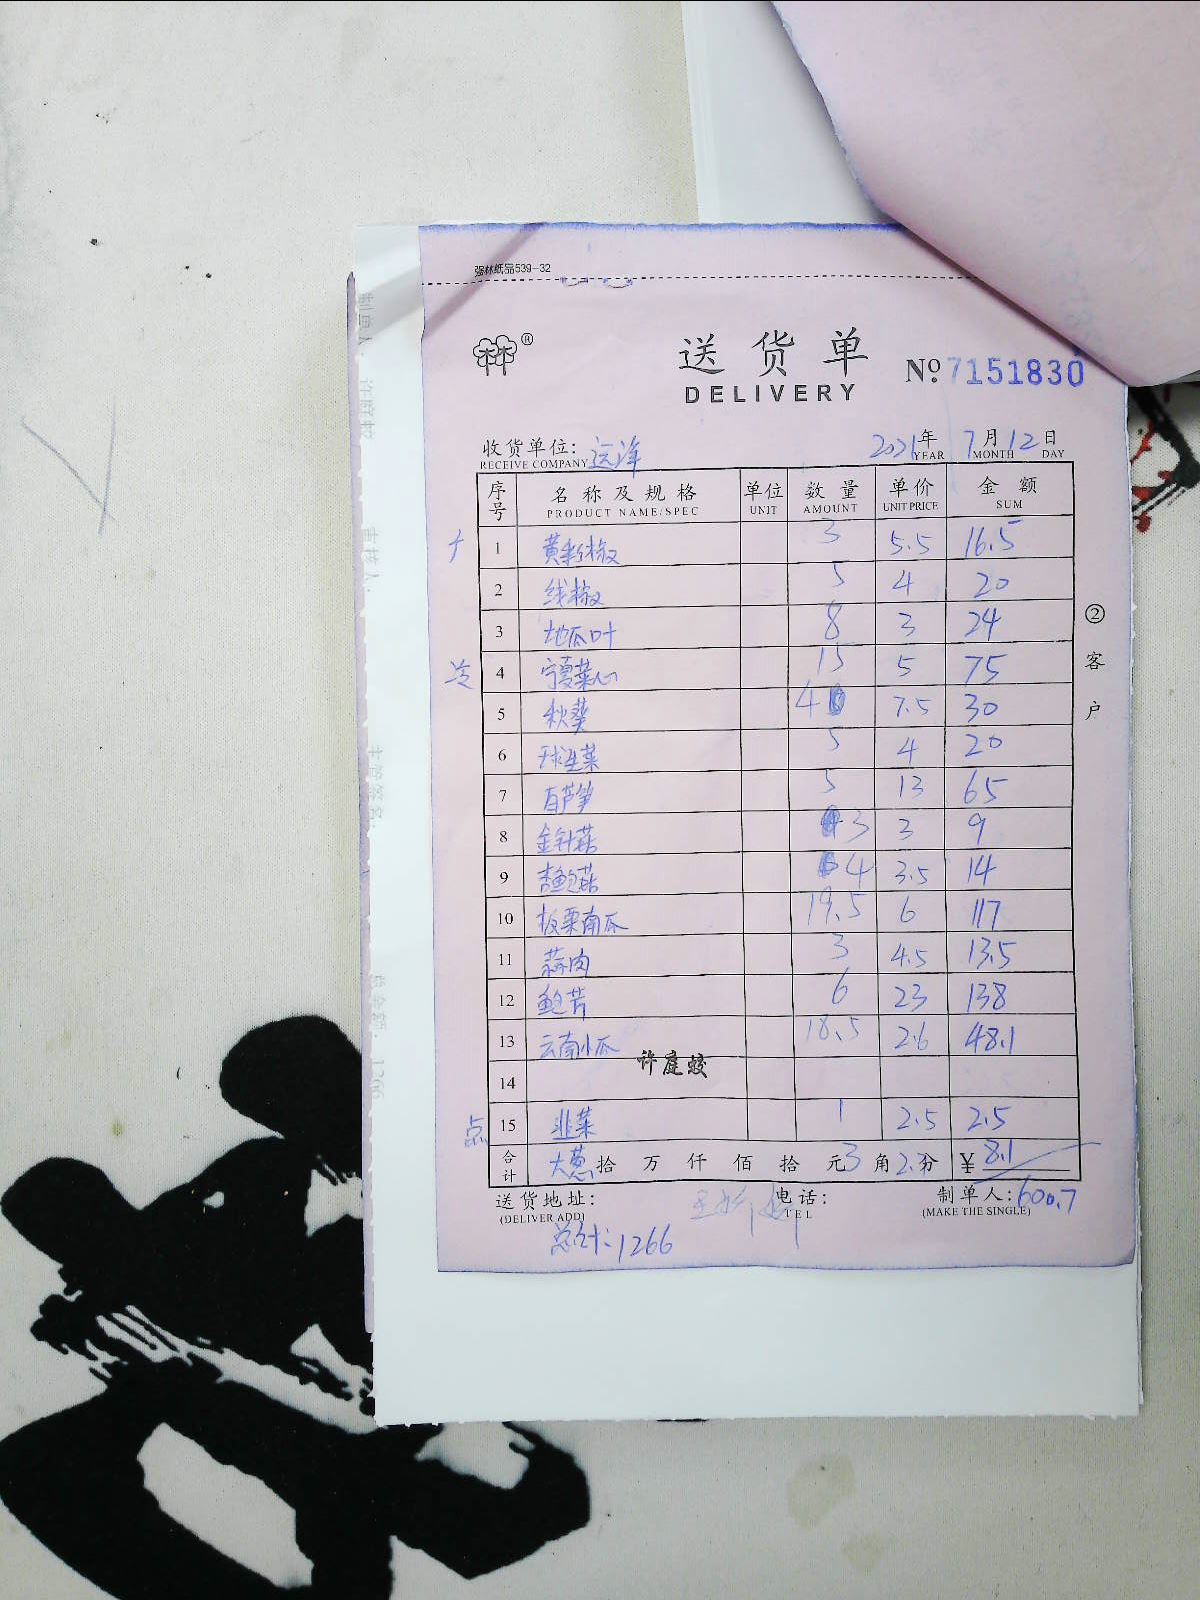 强林纸品539-32
林林®
送货单 No. 7151830
DELIVERY
收货单位: 远洋 2021年 7月12日
RECEIVE COMPANY YEAR MONTH DAY
序号 名称及规格 单位 数量 单价 金额
PRODUCT NAME/SPEC UNIT AMOUNT UNIT PRICE SUM
1 黄彩椒 3 5.5 16.5
2 线椒 5 4 20
3 地瓜叶 8 3 24
冷 4 宁夏菜心 15 5 75
5 秋葵 4 7.5 30
6 球生菜 5 4 20
7 百芦笋 5 13 65
8 金针菇 3 3 9
9 杏鲍菇 4 3.5 14
10 板栗南瓜 19.5 6 117
11 蒜肉 3 4.5 13.5
12 鲍芳 6 23 138
13 云南小瓜 18.5 2.6 48.1
许庭蛟
14
点 15 韭菜 1 2.5 2.5
合计 大葱 拾 万 仟 佰 拾 元 3 角 2.7 分 ¥ 8.1
送货地址: 电话: 制单人: 600.7
(DELIVER ADD) TEL (MAKE THE SINGLE)
总计: 1266
②客户